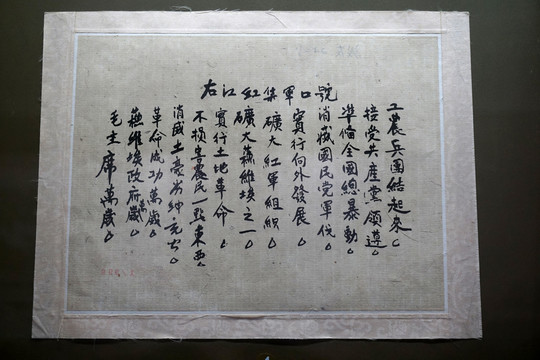 右江红集軍口號
工農兵團结起來。
接受共產黨领導。
準偹全國總暴動。
消滅國民党軍伐。
實行向外發展。
礦大紅軍组织。
礦大蘇維埃之一。
實行土地革命。
不损害農民一點東西。
消威土豪劣绅
革命成功萬歲。
蘇維埃政府萬歲。
毛主席萬歲。